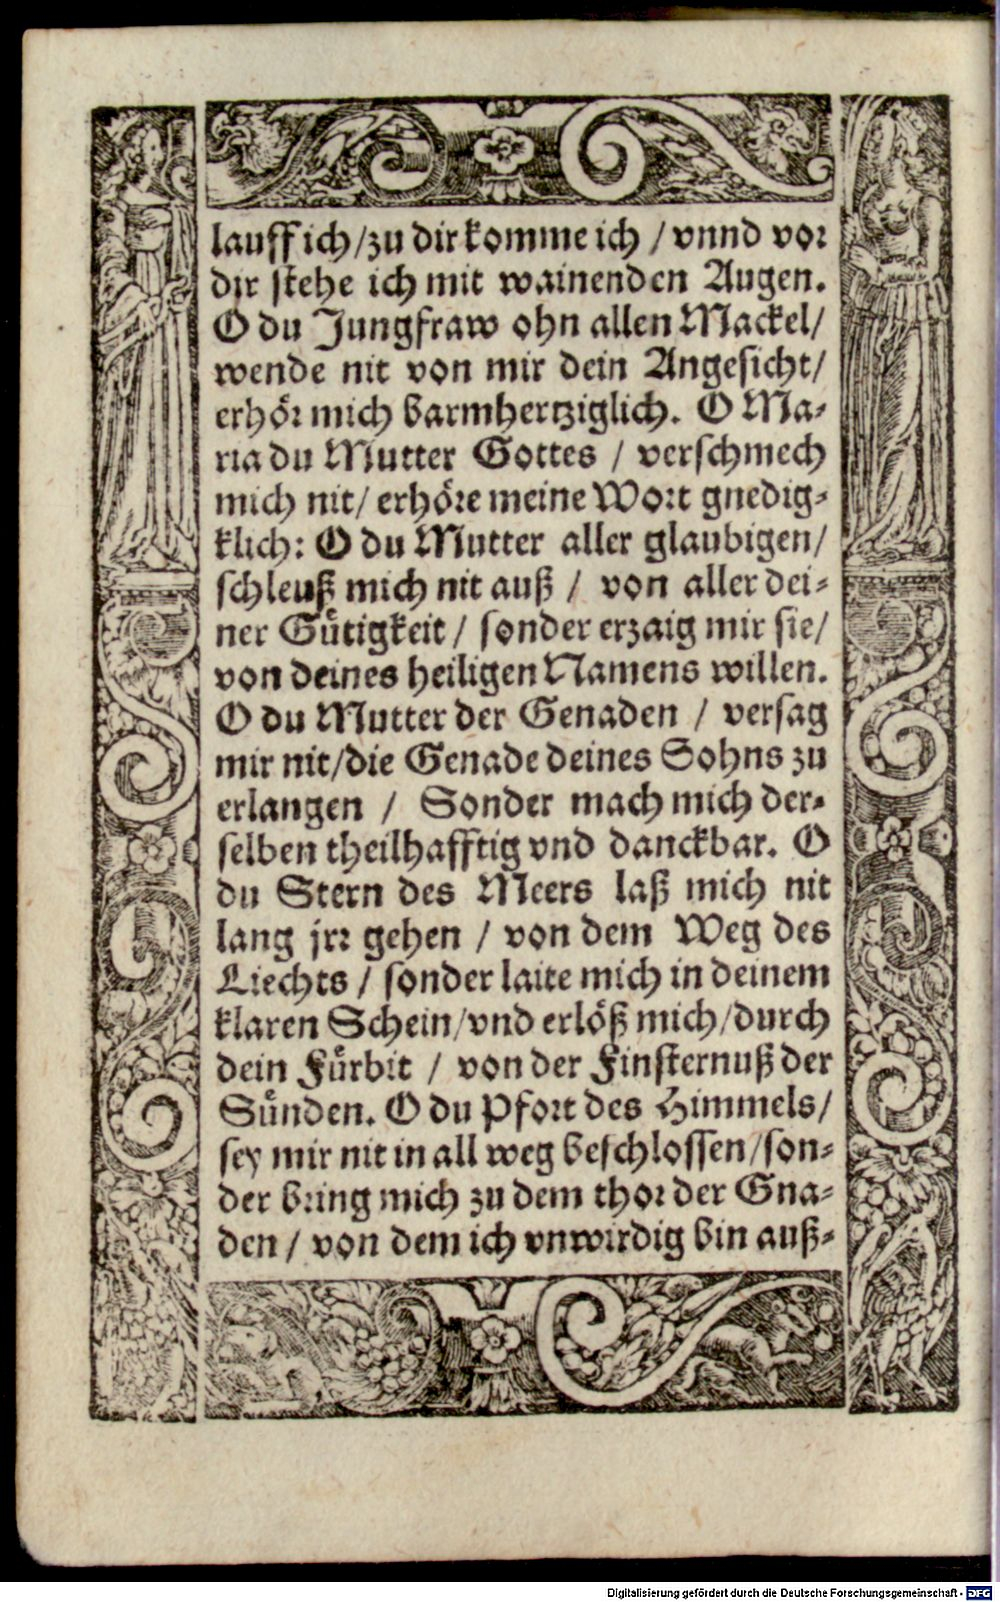 lauff ich/zu dir komme ich / vnnd vor
dir stehe ich mit wainenden Augen.
O du Jungfraw ohn allen Mackel/
wende nit von mir dein Angesicht/
erhör mich barmhertziglich. O Ma-
ria du Mutter Gottes / verschmech
mich nit/ erhöre meine Wort gnedig-
klich: O du Mutter aller glaubigen/
schleuß mich nit auß / von aller dei-
ner Gütigkeit / sonder erzaig mir sie/
von deines heiligen Namens willen.
O du Mutter der Genaden / versag
mir nit/die Genade deines Sohns zu
erlangen / Sonder mach mich der-
selben theilhafftig vnd danckbar. O
du Stern des Meers laß mich nit
lang jrr gehen / von dem Weg des
Liechts / sonder laite mich in deinem
klaren Schein/vnd erlöß mich/durch
dein Fürbit / von der Finsternuß der
Sünden. O du Pfort des Himmels/
sey mir nit in all weg beschlossen/son-
der bring mich zu dem thor der Gna-
den / von dem ich vnwirdig bin auß-
Digitalisierung gefördert durch die Deutsche Forschungsgemeinschaft - DFG